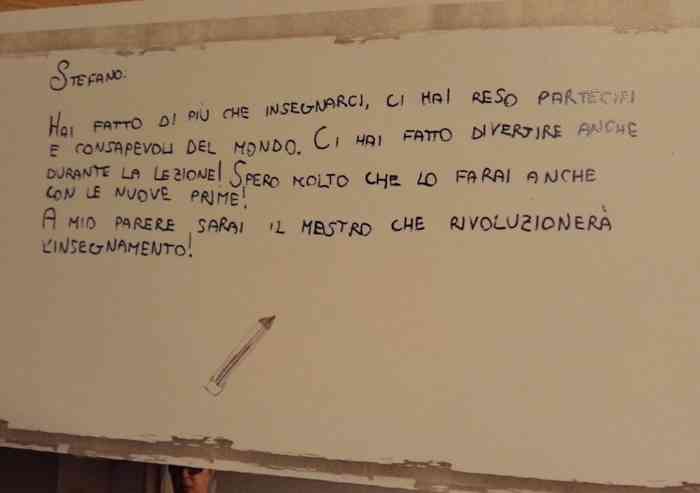 STEFANO.
HAI FATTO DI PIÙ CHE INSEGNARCI, CI HAI RESO PARTECIPI
E CONSAPEVOLI DEL MONDO. CI HAI FATTO DIVERTIRE ANCHE
DURANTE LA LEZIONE! SPERO MOLTO CHE LO FARAI ANCHE
CON LE NUOVE PRIME!
A MIO PARERE SARAI IL MESTRO CHE RIVOLUZIONERÀ
L'INSEGNAMENTO!